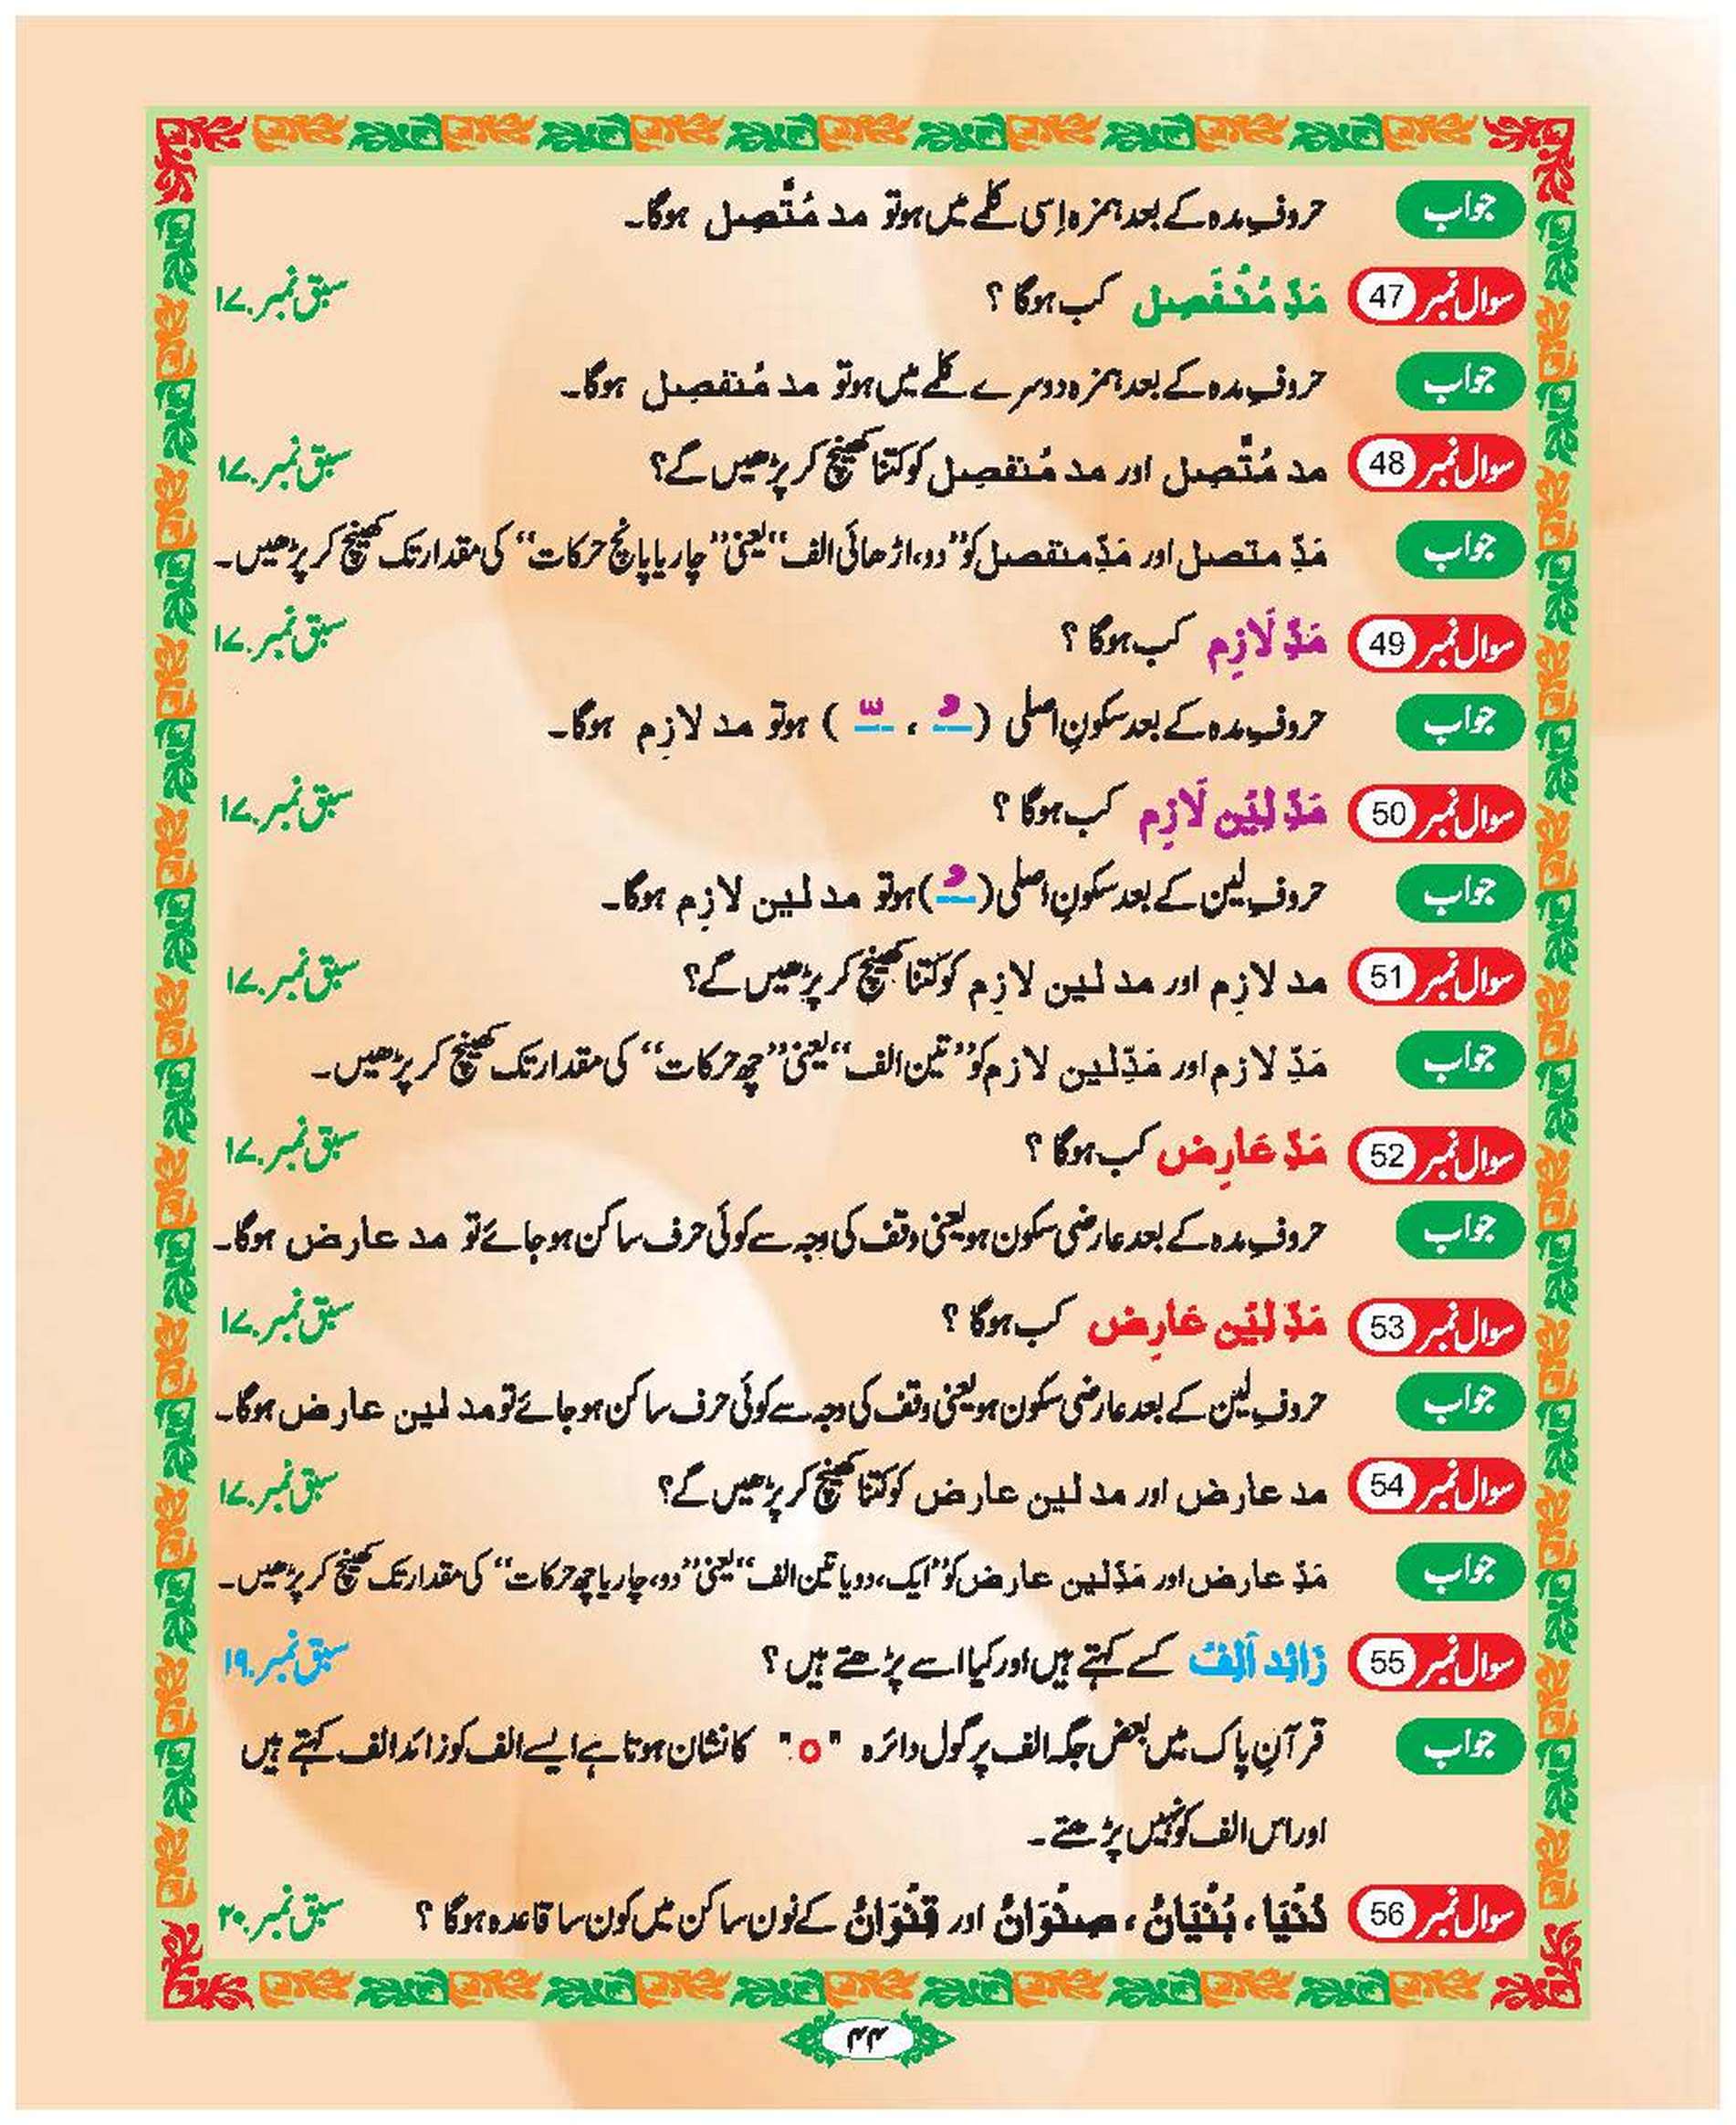 جواب حروفِ مدہ کے بعد ہمزہ اِسی کلمے میں ہو تو مد مُتَّصِل ہوگا۔
سوال نمبر 47 مَدِّ مُنْفَصِل کب ہوگا ؟ سبق نمبر۔۱۷
جواب حروفِ مدہ کے بعد ہمزہ دوسرے کلمے میں ہو تو مد مُنفصِل ہوگا۔
سوال نمبر 48 مد مُتَّصِل اور مد مُنفصِل کو کتنا کھینچ کر پڑھیں گے؟ سبق نمبر۔۱۷
جواب مَدِّ متصل اور مَدِّ منفصل کو ”دو،اڑھائی الف“ یعنی ”چار یا پانچ حرکات“ کی مقدار تک کھینچ کر پڑھیں۔
سوال نمبر 49 مَدِّ لَازِم کب ہوگا ؟ سبق نمبر۔۱۷
جواب حروفِ مدہ کے بعد سکونِ اصلی ( ْ ، ّ ) ہو تو مد لازِم ہوگا۔
سوال نمبر 50 مَدِّ لِیْن لَازِم کب ہوگا ؟ سبق نمبر۔۱۷
جواب حروفِ لین کے بعد سکونِ اصلی ( ْ ) ہو تو مد لین لازِم ہوگا۔
سوال نمبر 51 مد لازِم اور مد لین لازِم کو کتنا کھینچ کر پڑھیں گے؟ سبق نمبر۔۱۷
جواب مَدِّ لازم اور مَدِّ لین لازم کو ”تین الف“ یعنی ”چھ حرکات“ کی مقدار تک کھینچ کر پڑھیں۔
سوال نمبر 52 مَدِّ عَارِض کب ہوگا ؟ سبق نمبر۔۱۷
جواب حروفِ مدہ کے بعد عارضی سکون ہو یعنی وقف کی وجہ سے کوئی حرف ساکن ہو جائے تو مد عارض ہوگا۔
سوال نمبر 53 مَدِّ لِیْن عَارِض کب ہوگا ؟ سبق نمبر۔۱۷
جواب حروفِ لین کے بعد عارضی سکون ہو یعنی وقف کی وجہ سے کوئی حرف ساکن ہو جائے تو مد لین عارض ہوگا۔
سوال نمبر 54 مد عارض اور مد لین عارض کو کتنا کھینچ کر پڑھیں گے؟ سبق نمبر۔۱۷
جواب مَدِّ عارض اور مَدِّ لین عارض کو ”ایک،دو یا تین الف“ یعنی ”دو،چار یا چھ حرکات“ کی مقدار تک کھینچ کر پڑھیں۔
سوال نمبر 55 زَائد اَلِفْ کسے کہتے ہیں اور کیا اسے پڑھتے ہیں ؟ سبق نمبر۔۱۹
جواب قرآنِ پاک میں بعض جگہ الف پر گول دائرہ "o" کا نشان ہوتا ہے ایسے الف کو زائد الف کہتے ہیں
اور اس الف کو نہیں پڑھتے۔
سوال نمبر 56 دُنْیَا ، بُنْیَانٌ ، صِنْوَانٌ اور قِنْوَانٌ کے نون ساکن میں کون سا قاعدہ ہوگا ؟ سبق نمبر۔۲۰
۴۴